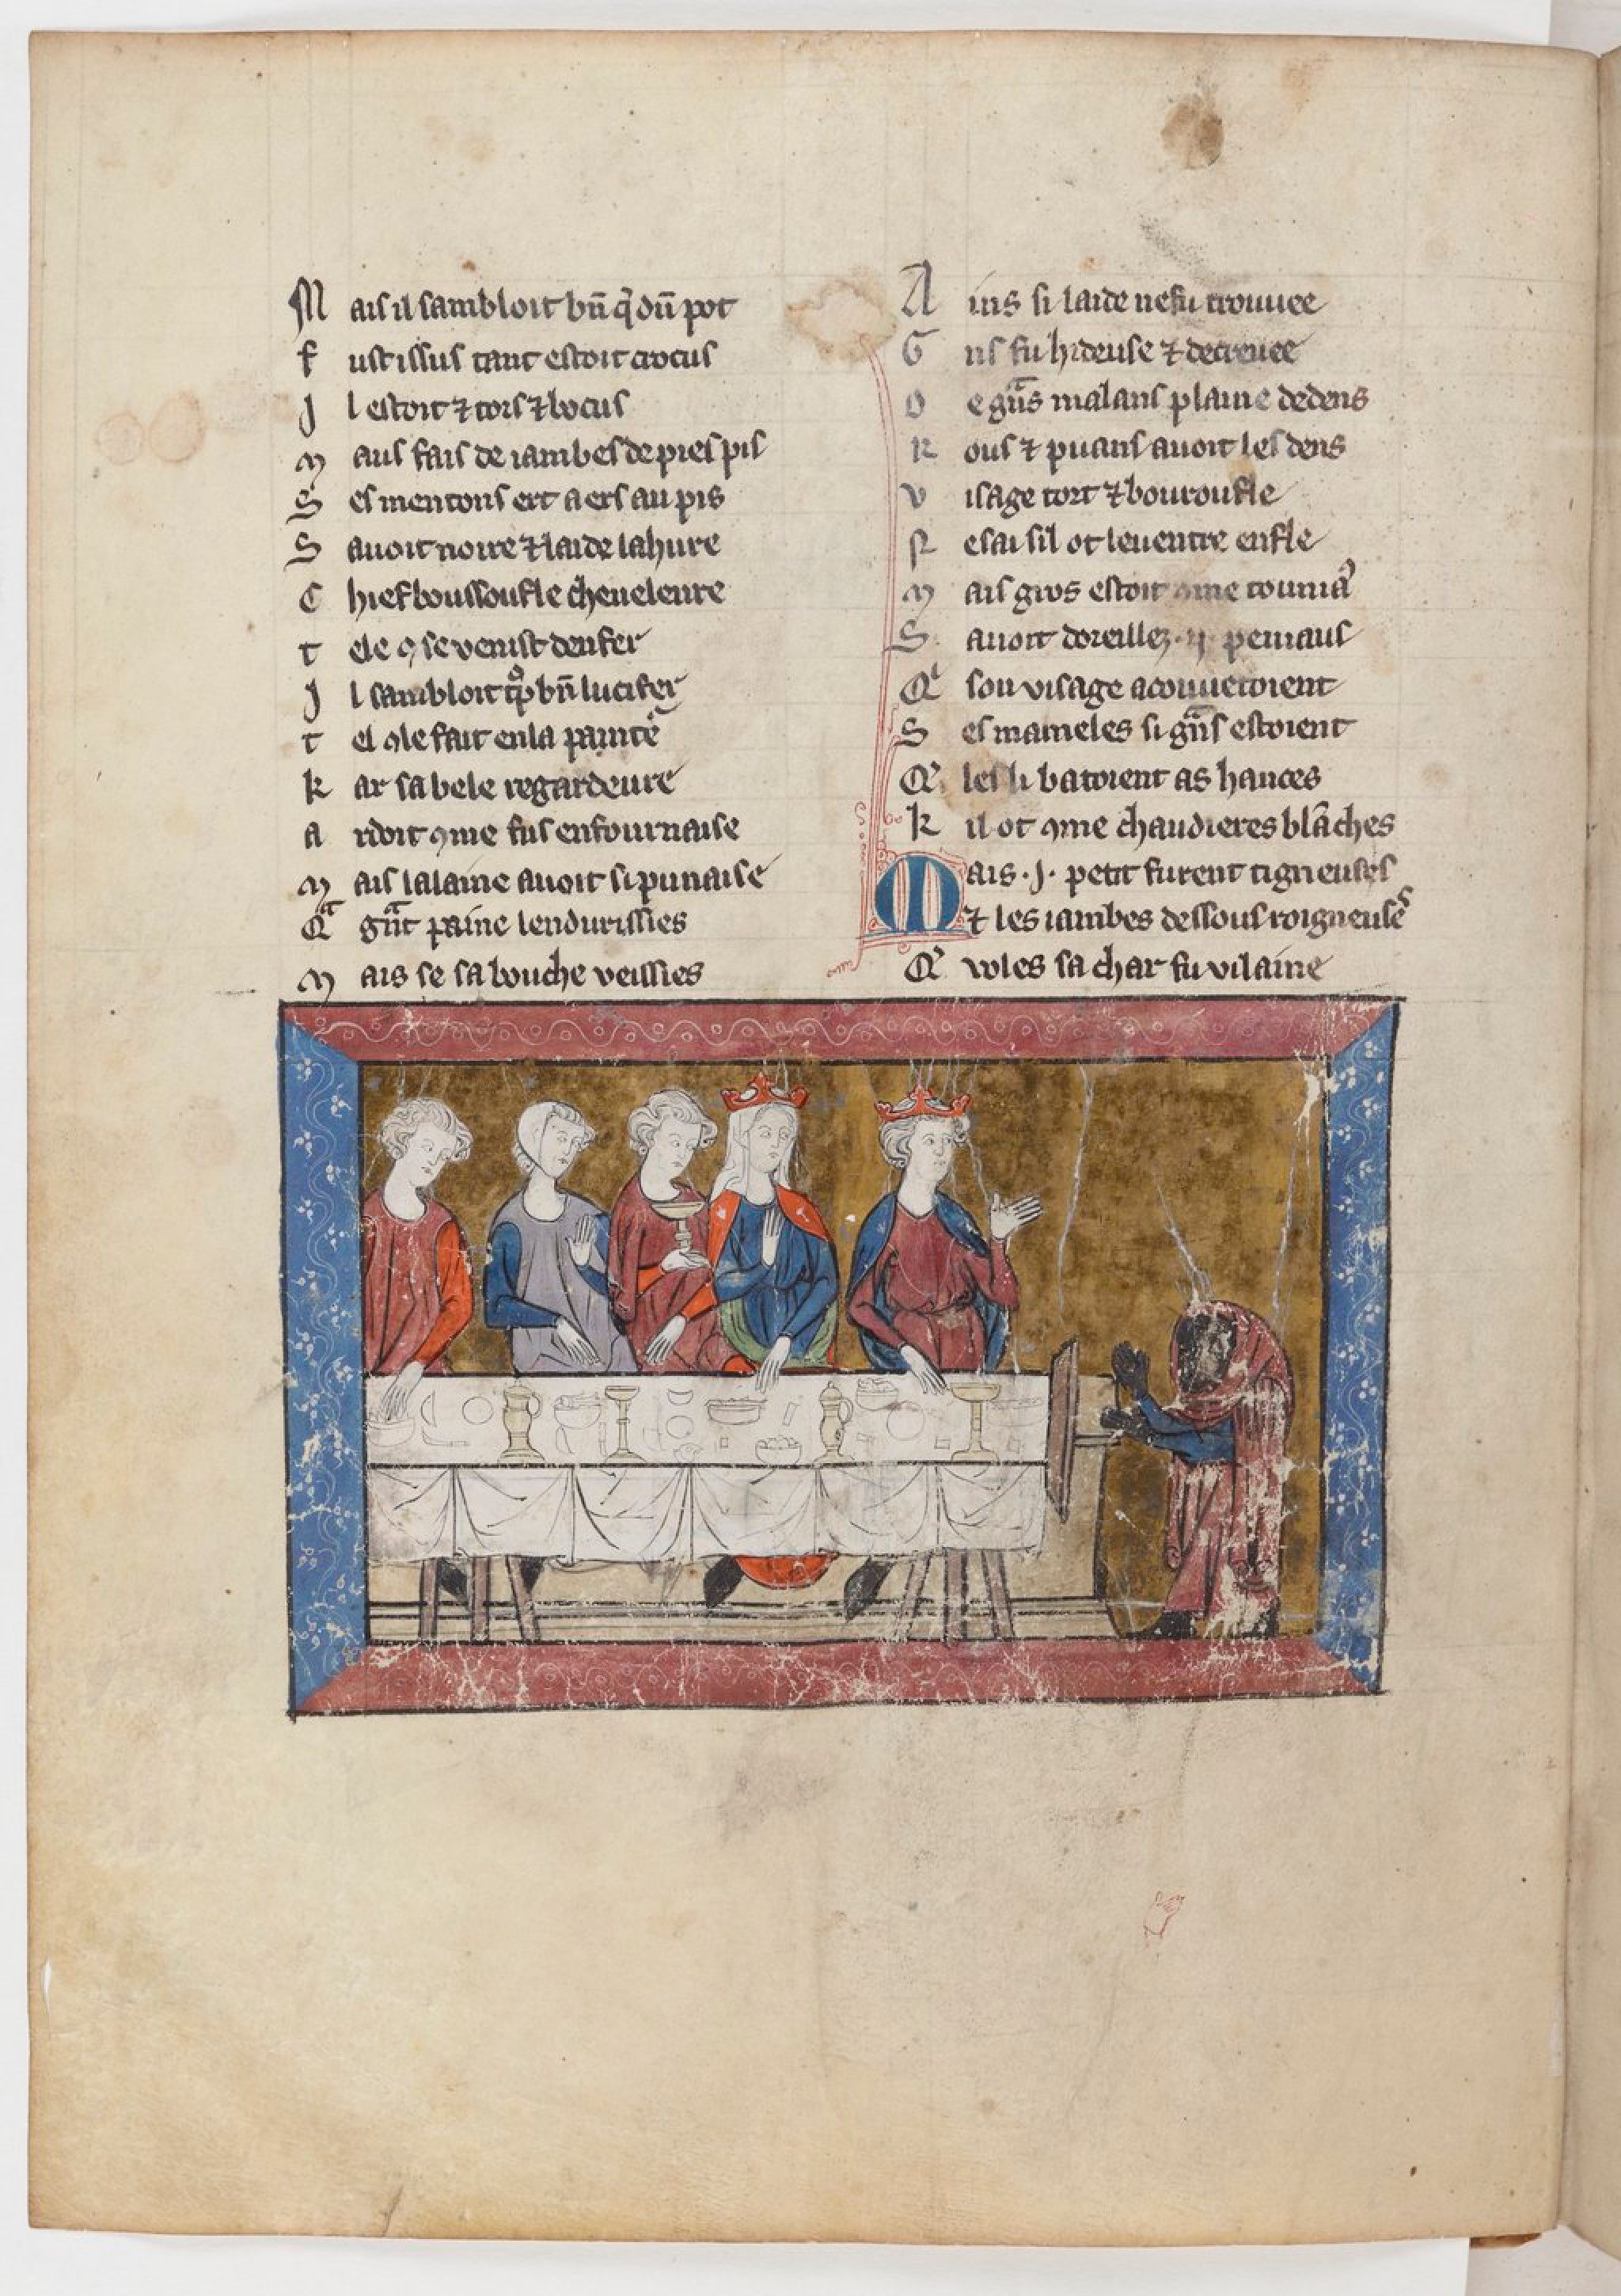 M ais il sambloit bn̄ q̄ dun̄ pot
f ust issus tant estoit crocus
J l estoit ⁊ tors ⁊ bocus
M aus fais de iambes de pies pis
S es mentons ert aers au pis
S auoit noire ⁊ laide la hure
C hief boussoufle cheueleure
t ele ꝯ se venist denfer
J l sambloit bn̄ lucifer
t el ꝯ le fait en la painte
k ar sa bele regardeure
a rdoit ꝯme fus en fournaise
M ais lalaine auoit si punaise
Qᵃ gnt̄ paine lendurissies
M ais se sa bouche veissies
A ins si laide ne fu trouuee
G ns fu hideuse ⁊ decreuee
D e gn̄s malans plaine dedens
R ous ⁊ puans auoit les dens
V isage tort ⁊ bouroufle
N e sai sil ot le uentre enfle
M ais gros estoit ꝯme
S auoit doreilles .ij. peniaus
Qⁱ son visage acouuetoient
S es mameles si gn̄s estoient
Qᵉ les li batoient as hances
k il ot ꝯme chaudieres blāches
M ais .j. petit furent tigneuses
⁊ les iambes dessous roigneuses
Qᵉ voles sa char fu vilaine